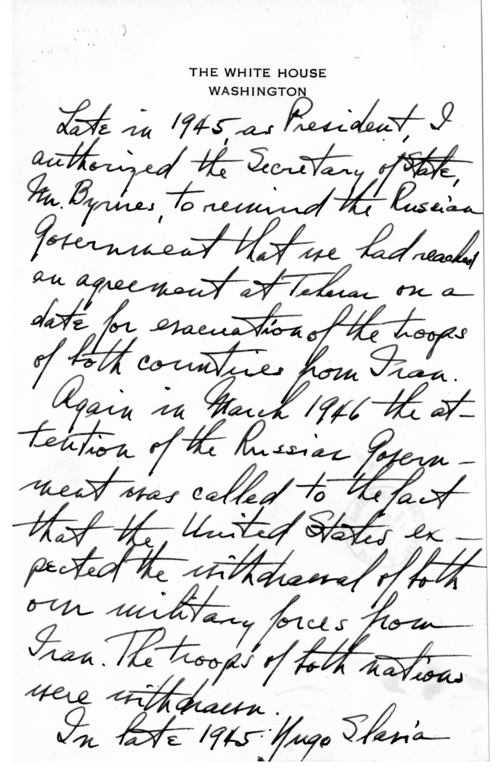 THE WHITE HOUSE
WASHINGTON
Late in 1945, as President, I
authorized the Secretary of State,
Mr. Byrnes, to remind the Russian
Government that we had reached
an agreement at Teheran on a
date for evacuation of the troops
of both countries from Iran.
Again in March 1946 the at-
tention of the Russian Govern-
ment was called to the fact
that the United States ex-
pected the withdrawal of both
our military forces from
Iran. The troops of both nations
were withdrawn.
In late 1945 Yugo Slavia